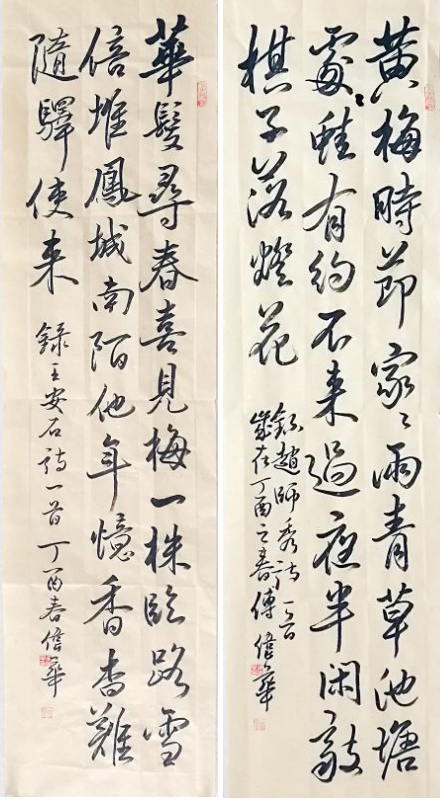 黄梅時節家〻雨青草池塘
處〻蛙有約不来過夜半閑敲
棋子落燈花
錄趙師秀詩一首
歲在丁酉之春傅偉華
華髮尋春喜見梅一株臨路雪
倍堆鳳城南陌他年憶香杳難
隨驛使来
録王安石詩一首丁酉春偉華